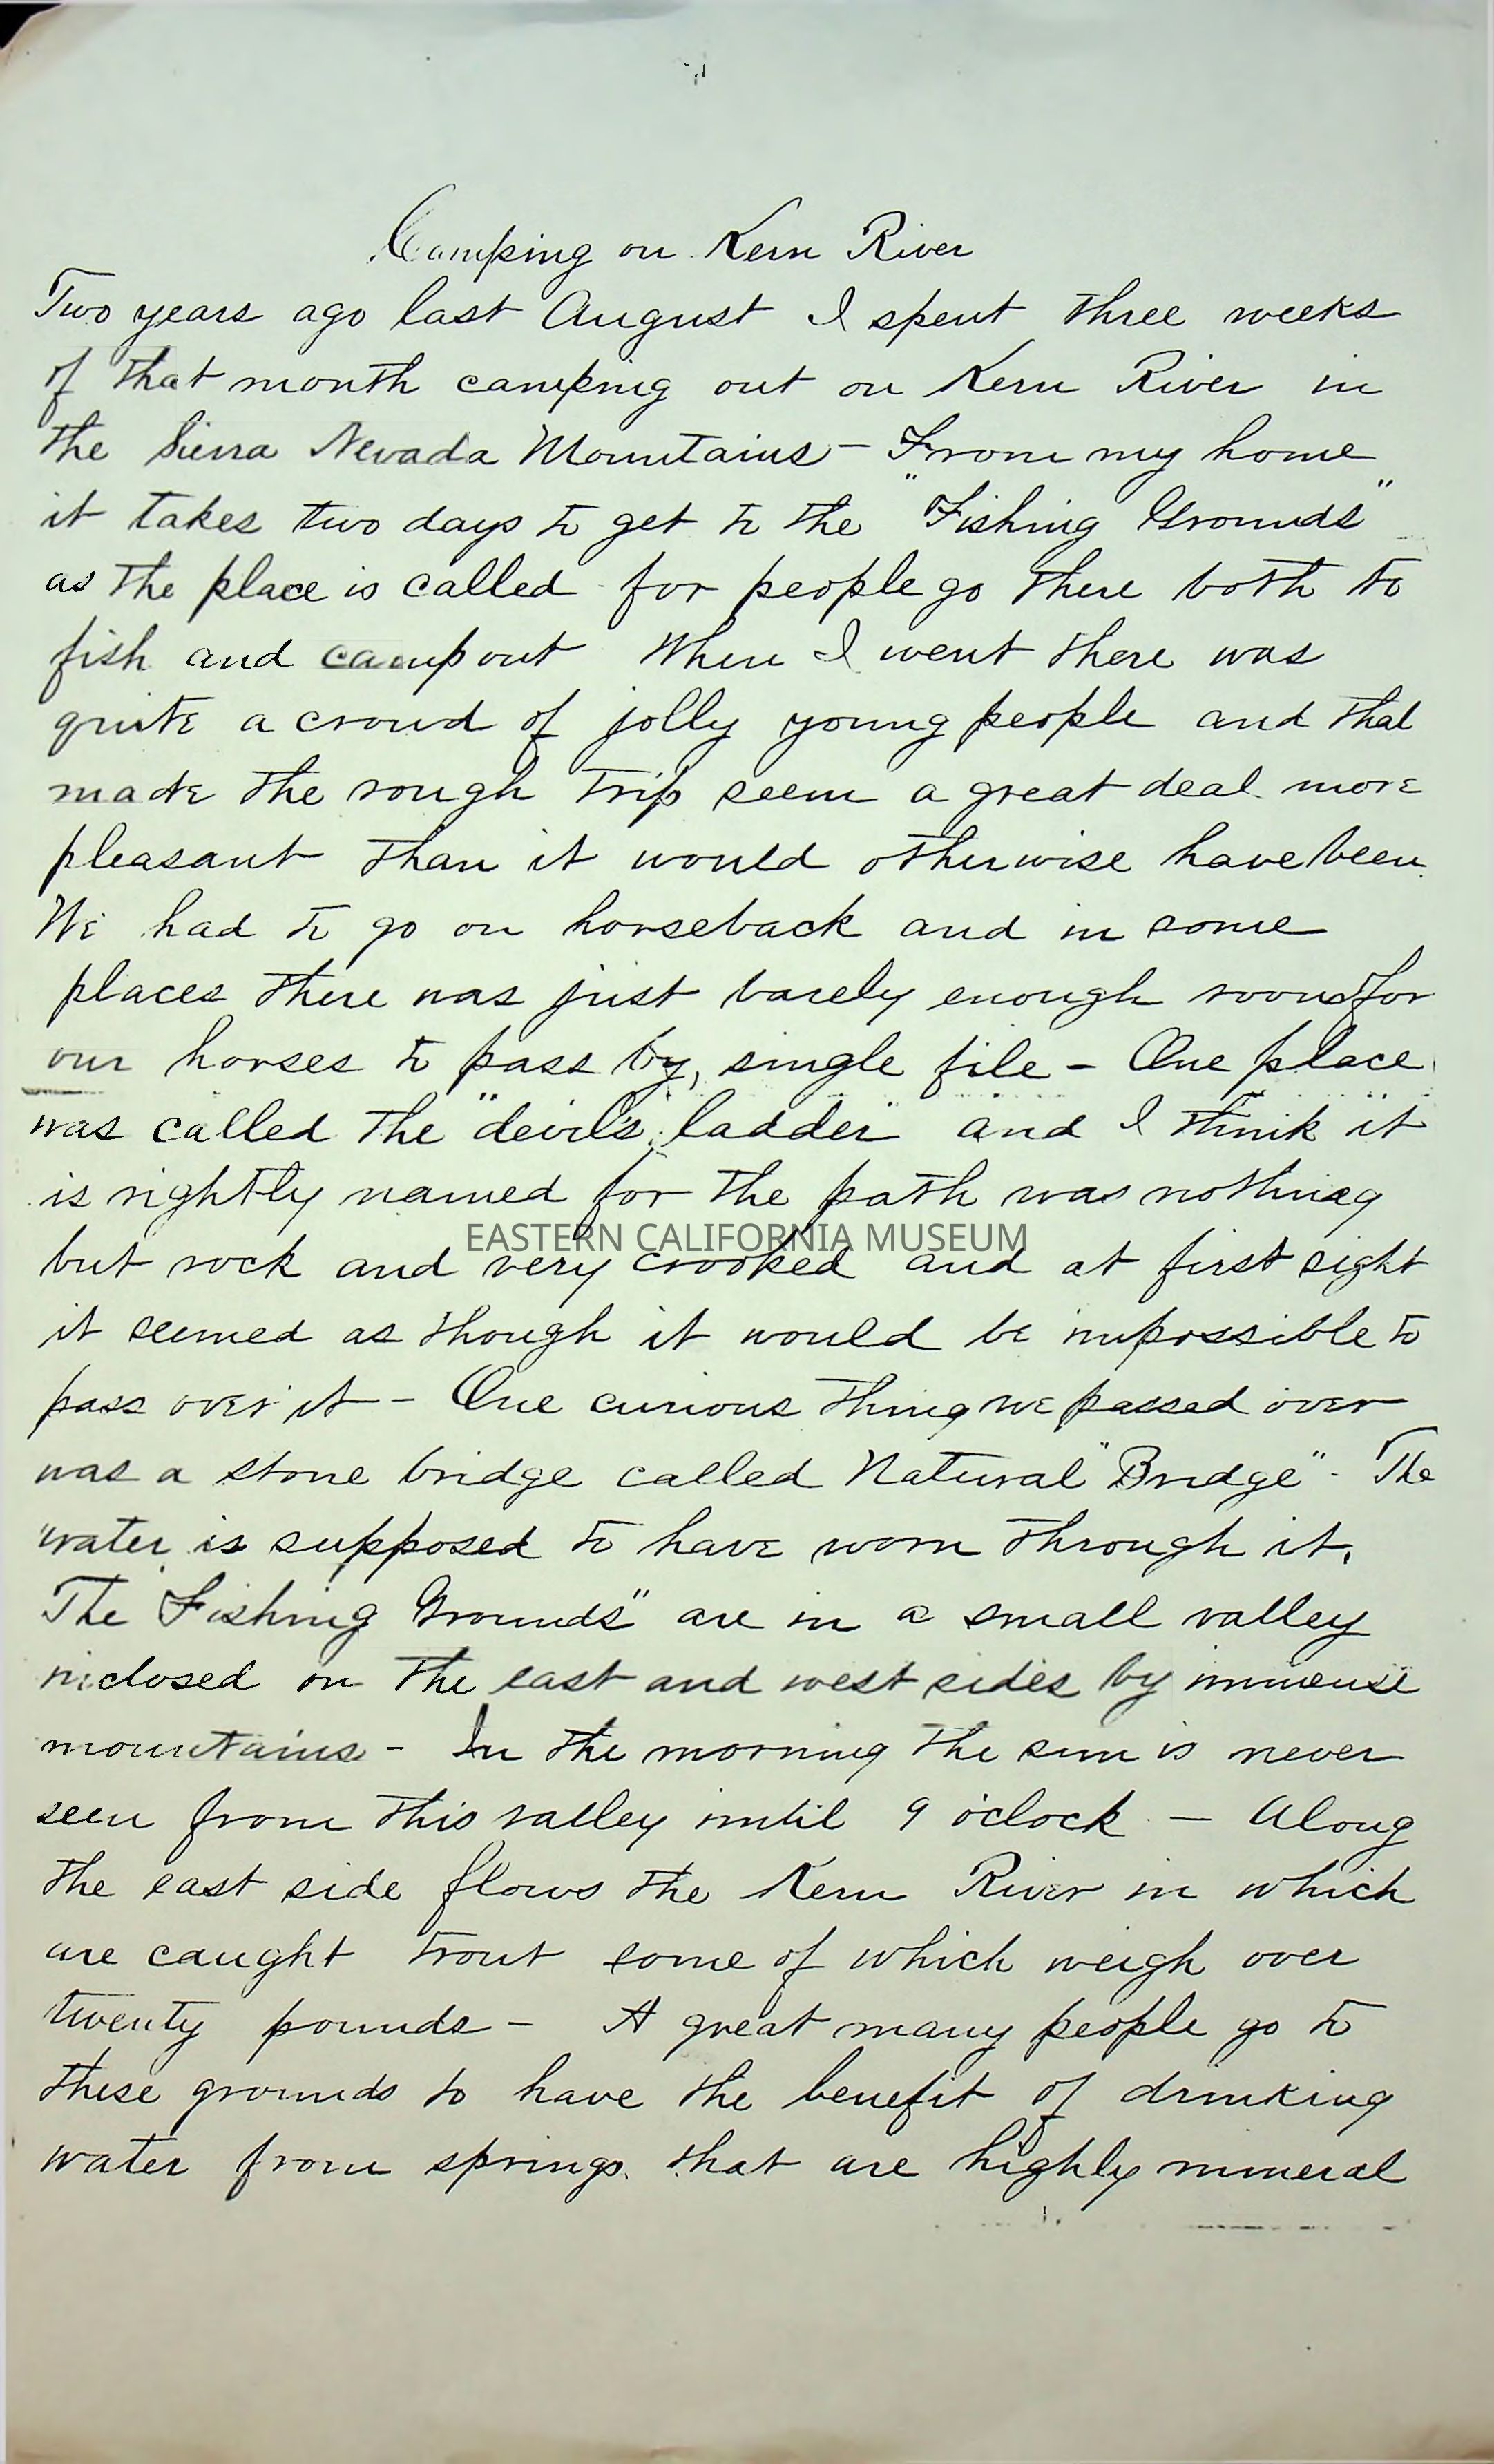 Camping on Kern River
Two years ago last August I spent three weeks
of that month camping out on Kern River in
the Sierra Nevada Mountains - From my home
it takes two days to get to the "Fishing Grounds"
as the place is called for people go there both to
fish and camp out When I went there was
quite a crowd of jolly young people and that
made the rough trip seem a great deal more
pleasant than it would otherwise have been.
We had to go on horseback and in some
places there was just barely enough room for
our horses to pass by, single file - One place
was called the "devil's ladder" and I think it
is rightly named for the path was nothing
EASTERN CALIFORNIA MUSEUM
but rock and very crooked and at first sight
it seemed as though it would be impossible to
pass over it - One curious thing we passed over
was a stone bridge called Natural "Bridge" - The
water is supposed to have worn through it.
The Fishing Grounds" are in a small valley
inclosed on the east and west sides by immense
mountains - In the morning the sun is never
seen from this valley until 9 o'clock - Along
the east side flows the Kern River in which
are caught trout some of which weigh over
twenty pounds - A great many people go to
these grounds to have the benefit of drinking
water from springs that are highly mineral